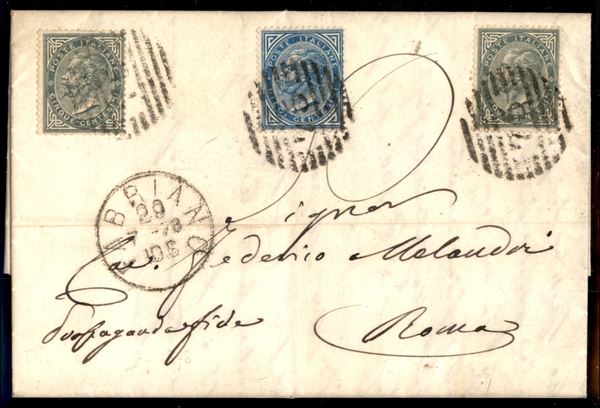 POSTE ITALIANE POSTE ITALIANE POSTE ITALIANE
CINQUE CENTESIMI VENTI CENTESIMI CINQUE CENTESIMI
FABRIANO
29
78
Signor
Cav. Federico Melandri
Propaganda fide Roma